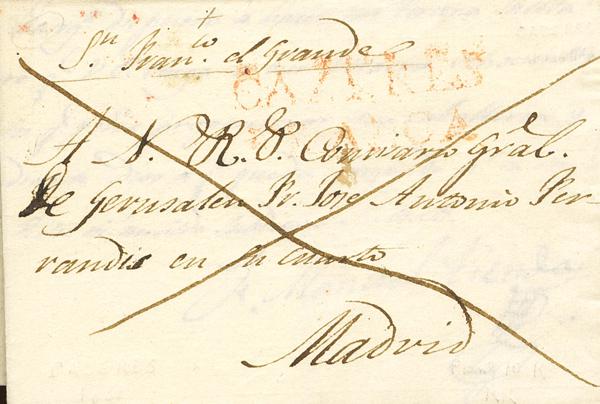 Sn. Franco. el Grande
CAZERES
FRANCA
A N. R. P. Comisario Gral.
De Gerusalen Fr. Jose Antonio Fer-
randis en su cuarto
Madrid